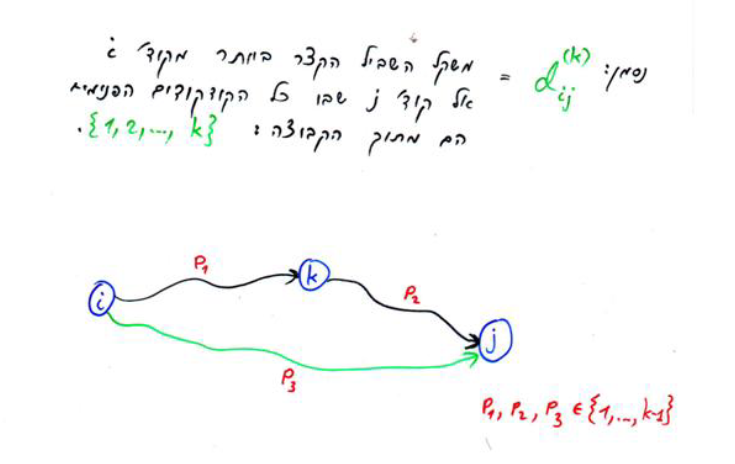 נסמן: d_{ij}^{(k)} = משקל השביל הקצר ביותר מקוד' i
אל קוד' j שבו כל הקודקודים הפנימיים
הם מתוך הקבוצה: {1, 2, ..., k}.
P₁
k
i
P₂
j
P₃
P₁, P₂, P₃ ∈ {1, ..., k-1}